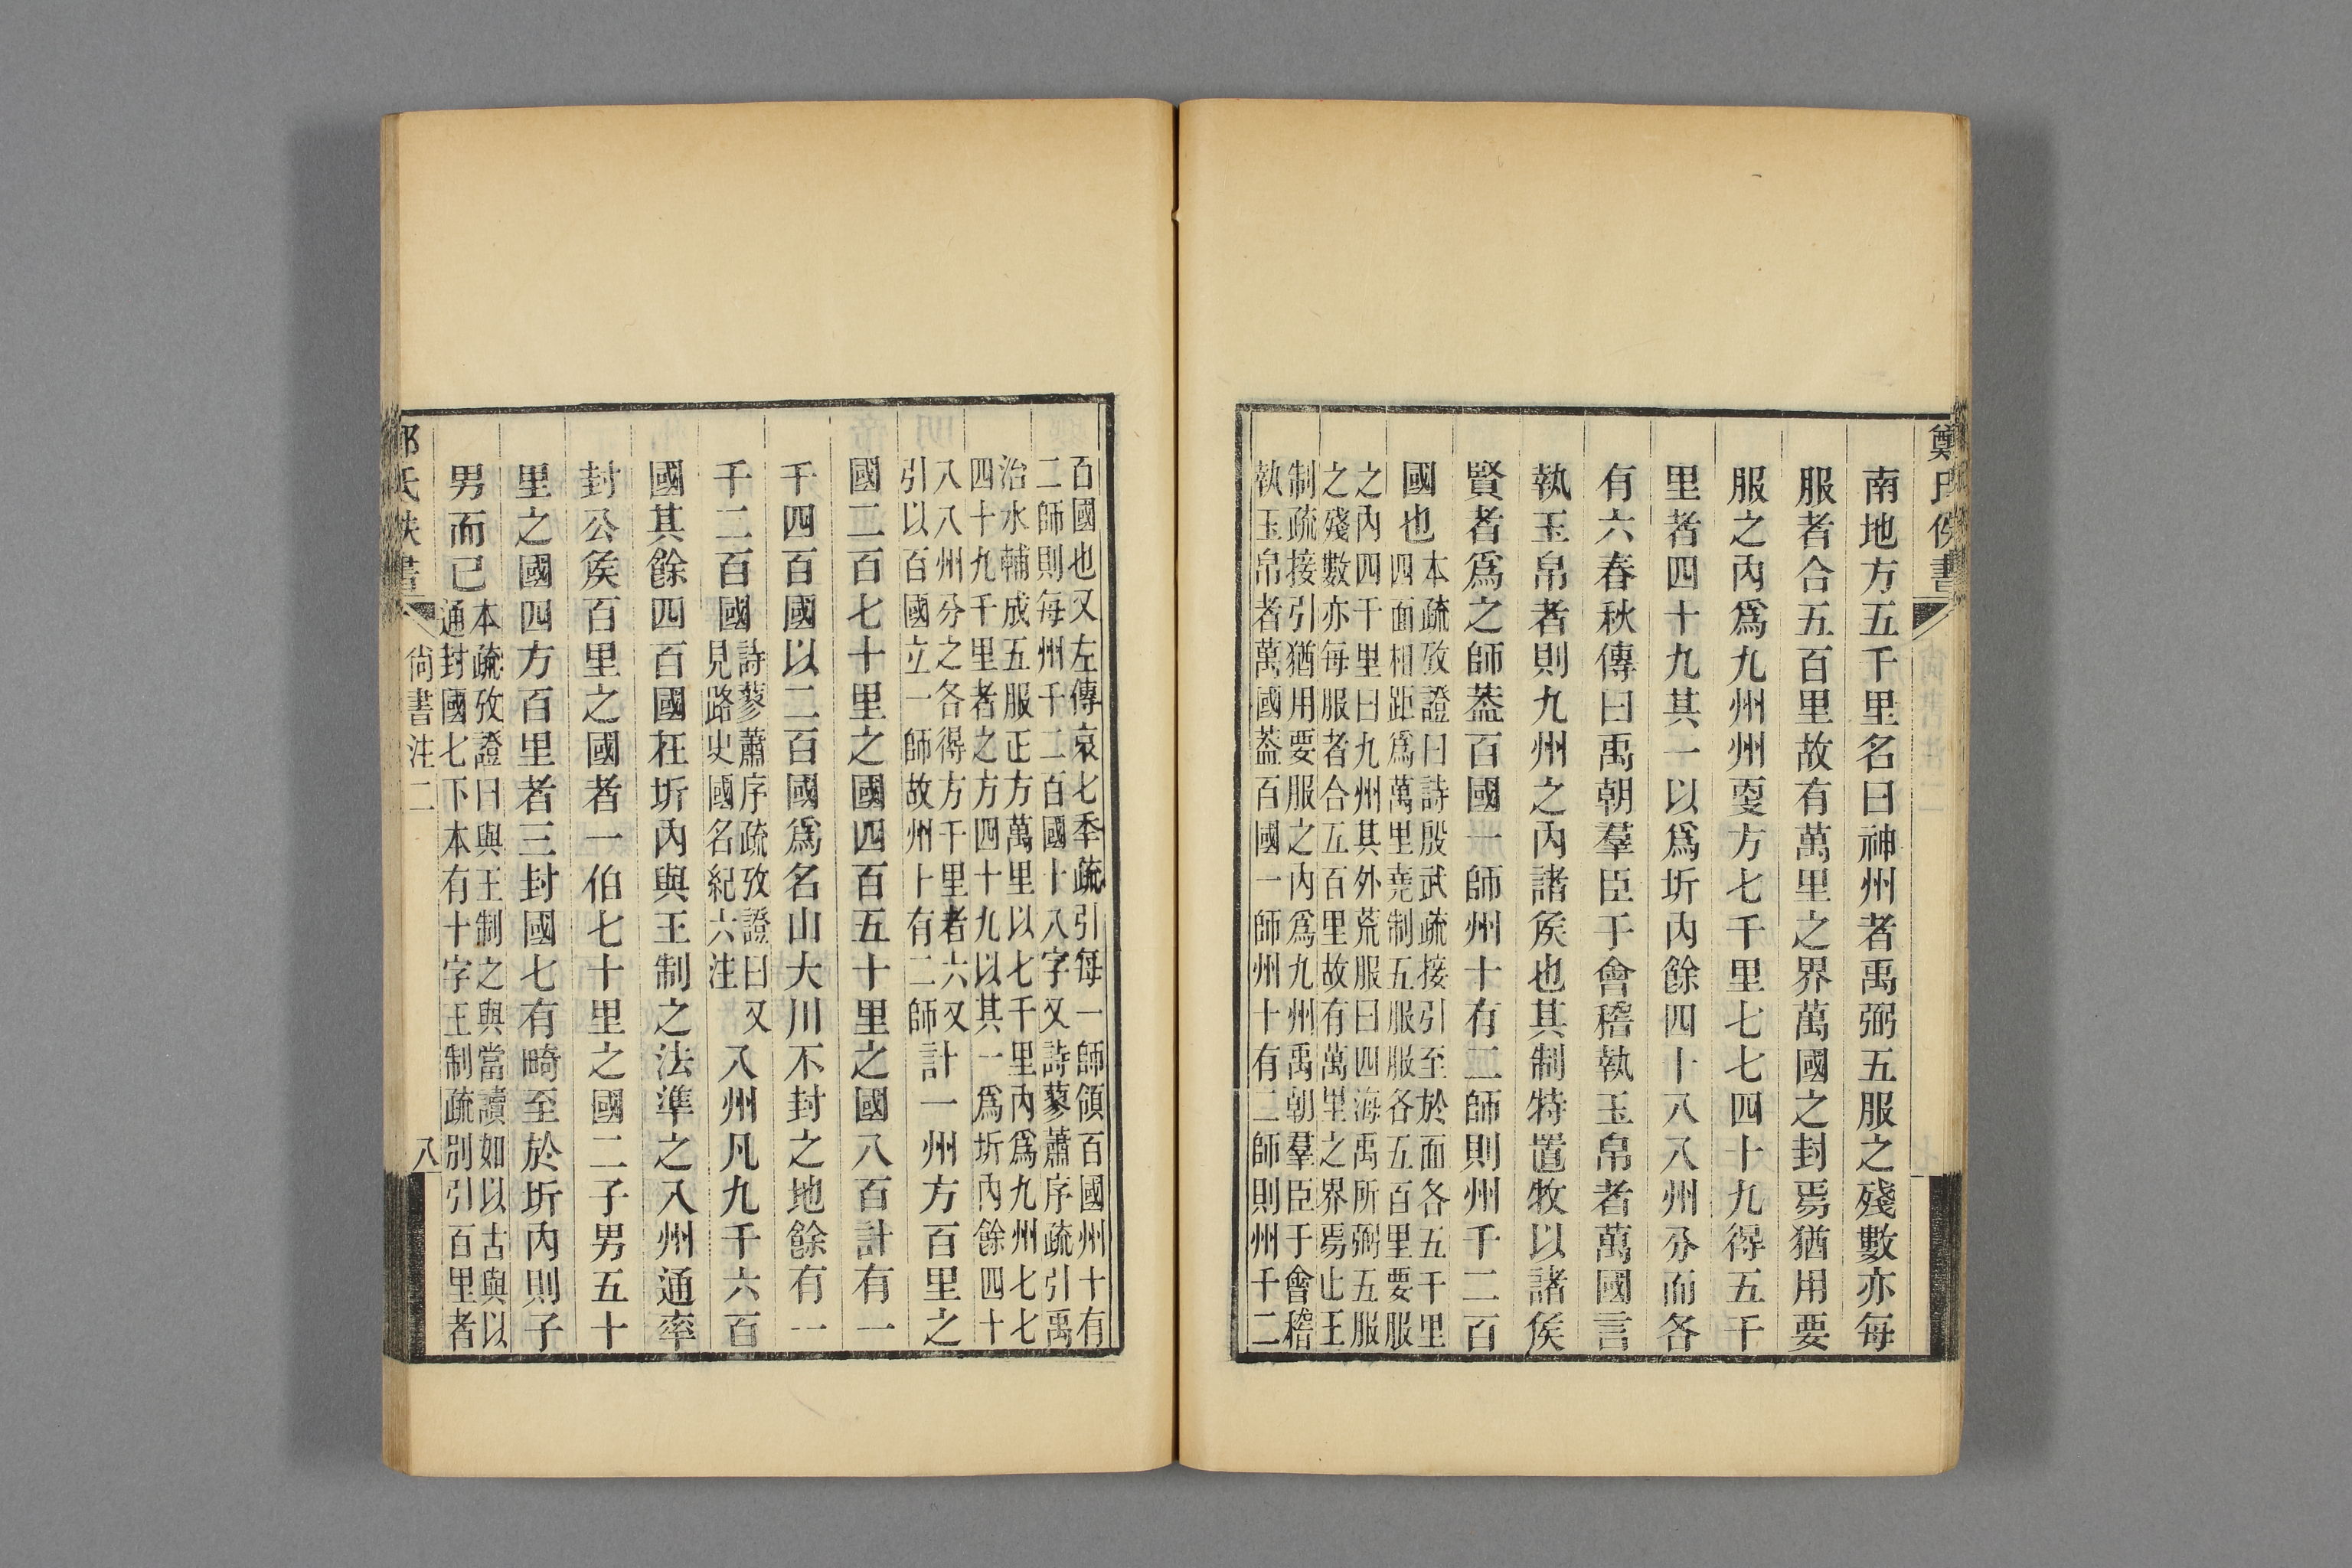 鄭氏佚書
南地方五千里名曰神州者禹弼五服之殘數亦每
服者合五百里故有萬里之界萬國之封焉猶用要
服之內爲九州州更方七千里七七四十九得五千
里者四十九其一以爲圻內餘四十八八州分而各
有六春秋傳曰禹朝羣臣于會稽執玉帛者萬國言
執玉帛者則九州之內諸矦也其制特置牧以諸矦
賢者爲之師葢百國一師州十有二師則州千二百
國也
本疏攷證曰詩殷武疏接引至於面各五千里
四面相距爲萬里堯制五服服各五百里要服
之內四千里曰九州其外荒服曰四海禹所弼五服
之殘數亦每服者合五百里故有萬里之界焉止王
制疏接引猶用要服之內爲九州禹朝羣臣于會稽
執玉帛者萬國葢百國一師州十有二師則州千二
百國也又左傳哀七年疏引每一師領百國州十有
二師則每州千二百國十八字又詩蓼蕭序疏引禹
治水輔成五服正方萬里以七千里內爲九州七七
四十九千里者之方四十九以其一爲圻內餘四十
八八州分之各得方千里者六又
引以百國立一師故州十有二師
計一州方百里之
國二百七十里之國四百五十里之國八百計有一
千四百國以二百國爲名山大川不封之地餘有一
千二百國
詩蓼蕭序疏攷證曰又
見路史國名紀六注
八州凡九千六百
國其餘四百國在圻內與王制之法準之八州通率
封公矦百里之國者一伯七十里之國二子男五十
里之國四方百里者三封國七有畸至於圻內則子
男而已
本疏攷證曰與王制之與當讀如以古與以
通封國七下本有十字王制疏別引百里者
鄭氏佚書
尙書注二
八